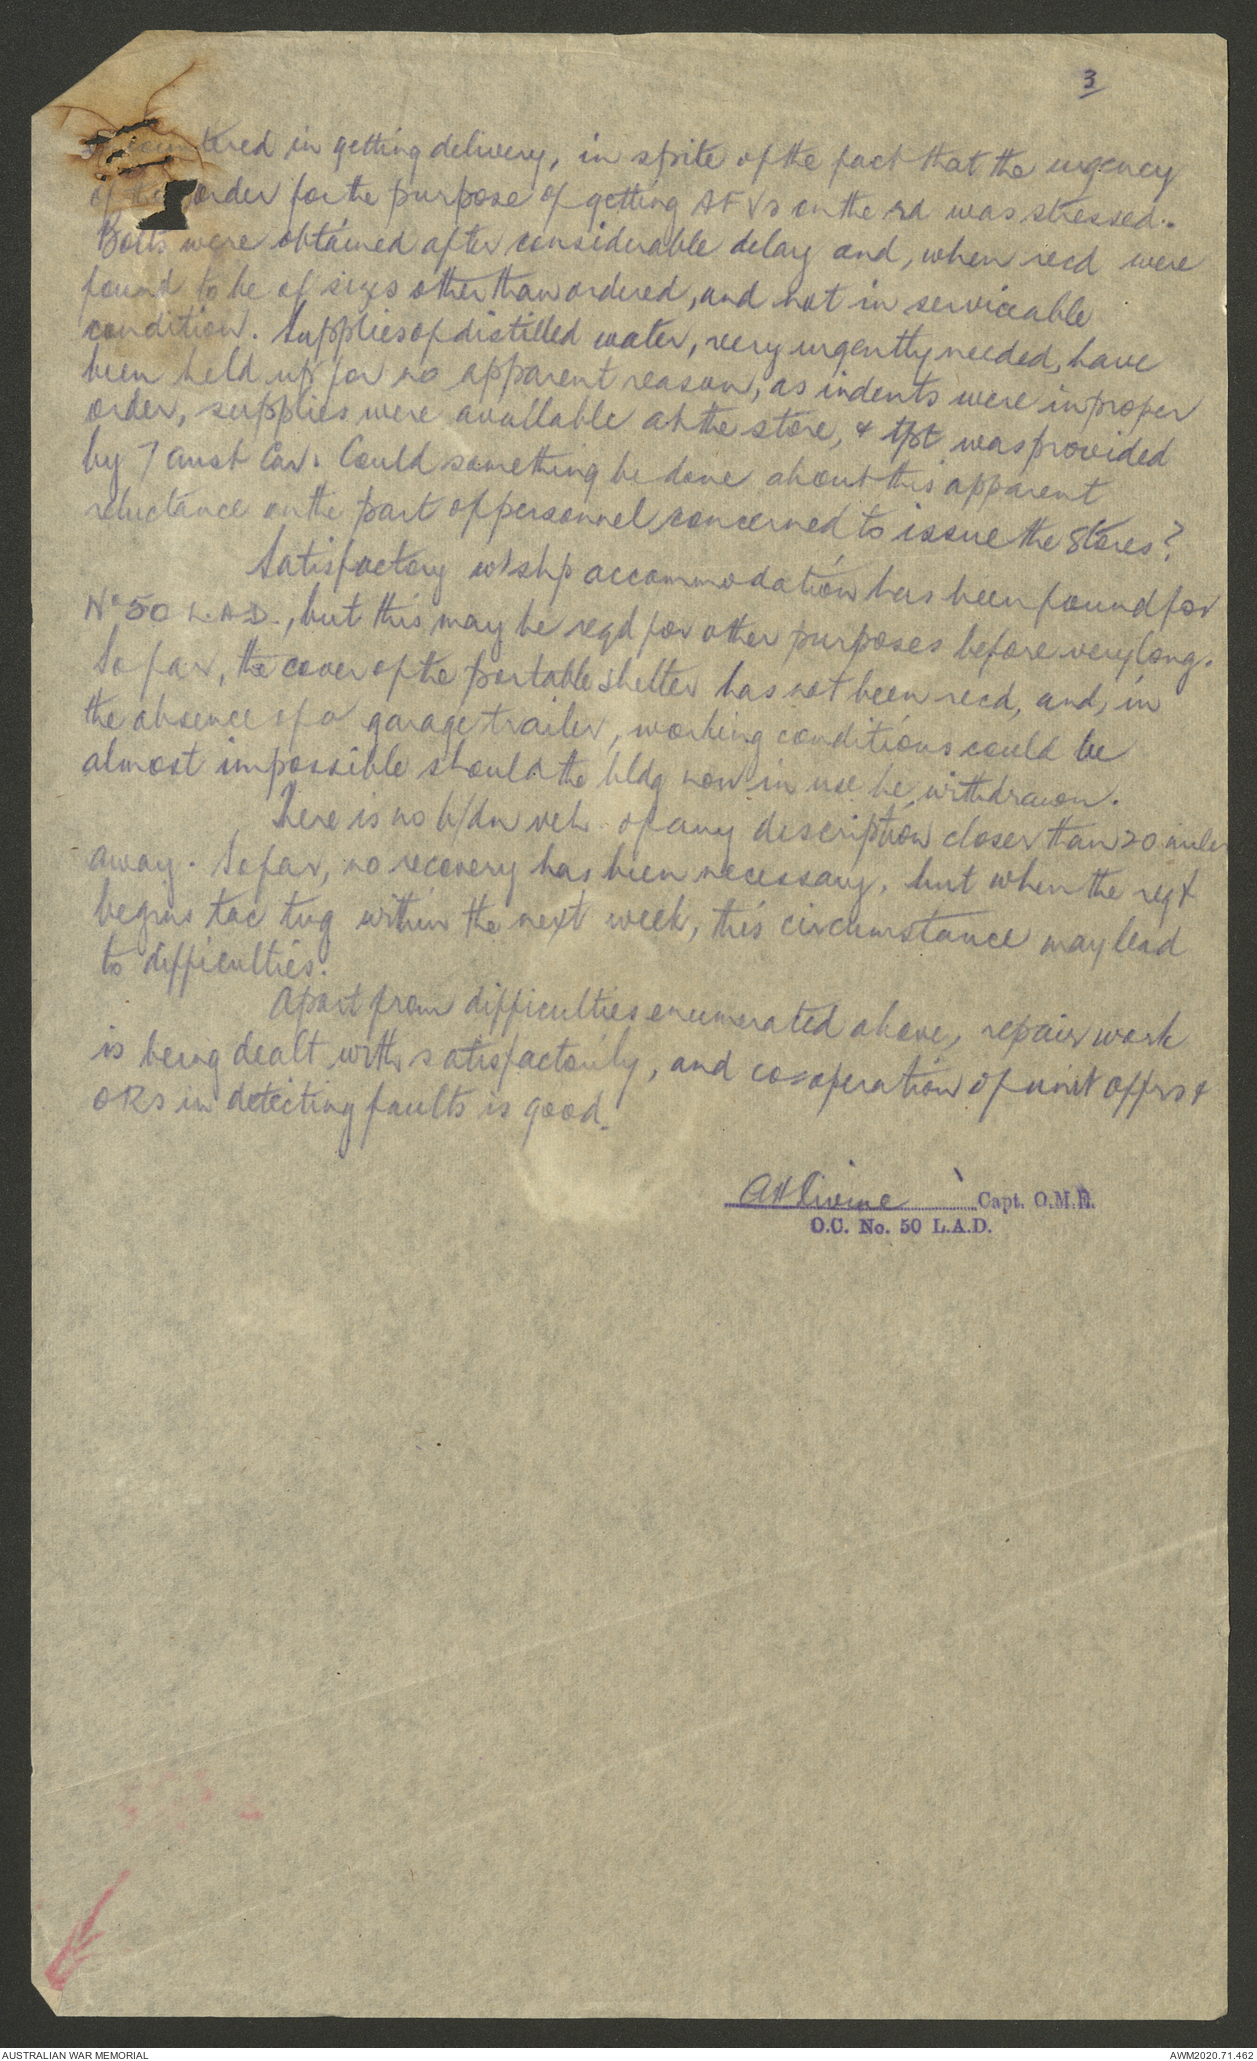 3
encountered in getting delivery, in spite of the fact that the urgency
of the order for the purpose of getting AFVs on the rd was stressed.
Bolts were obtained after considerable delay and, when recd were
found to be of sizes other than ordered, and not in serviceable
condition. Supplies of distilled water, very urgently needed, have
been held up for no apparent reason, as indents were in proper
order, supplies were available at the store, & tpt was provided
by 7 Aust Cav. Could something be done about this apparent
reluctance on the part of personnel concerned to issue the stores?
Satisfactory w'shp accommodation has been found for
No 50 L.A.D., but this may be reqd for other purposes before very long.
So far, the cover of the portable shelter has not been recd, and, in
the absence of a garage trailer, working conditions could be
almost impossible should the bldg now in use be withdrawn.
There is no b/dn veh. of any description closer than 20 miles
away. So far, no recovery has been necessary, but when the regt
begins tac tng within the next week, this circumstance may lead
to difficulties.
Apart from difficulties enumerated above, repair work
is being dealt with satisfactorily, and co-operation of unit offrs &
ORs in detecting faults is good.
Capt. O.M.E.
O.C. No. 50 L.A.D.
AUSTRALIAN WAR MEMORIAL
AWM2020.71.462